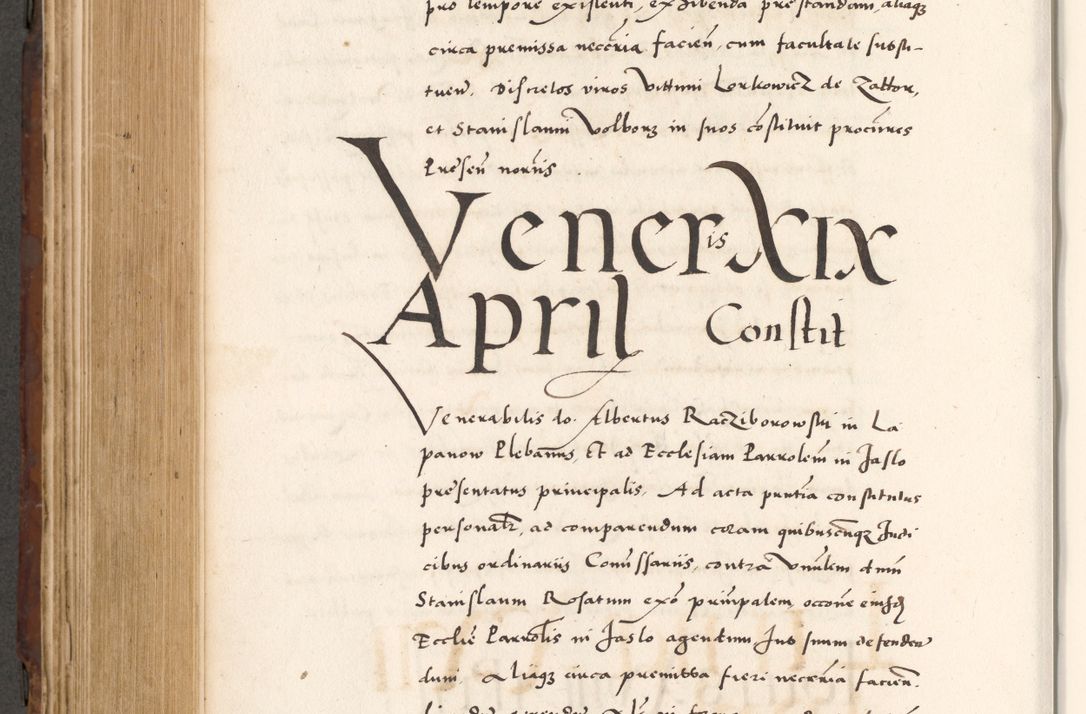 pro tempore existenti, exhibenda prestandam, aliaqz
circa premissa neccria facien, cum facultate substi-
tuen. Discretos viros Vittimi Lorkowicz de Zathor,
et Stanislaum Wolborz in suos cōstituit procures
Presen norris
Veneris XIX
April Constit
Venerabilis do. Albertus Racziborowski in La
panow Plebanus, Et ad Ecclesiam Parrolem in Jaslo
presentatus principalis, Ad acta pūtia constitutus
personalr, ad comparendum coram quibuscūqz Judi
cibus ordinariis Commissariis, contra Vnulem dmn
Stanislaum Rosatum exō prinpalem, occone eiusd
Ecclie Parrolis in Jaslo agendum Jus suum defenden
dum. Aliaqz circa premissa fieri necceria facien.